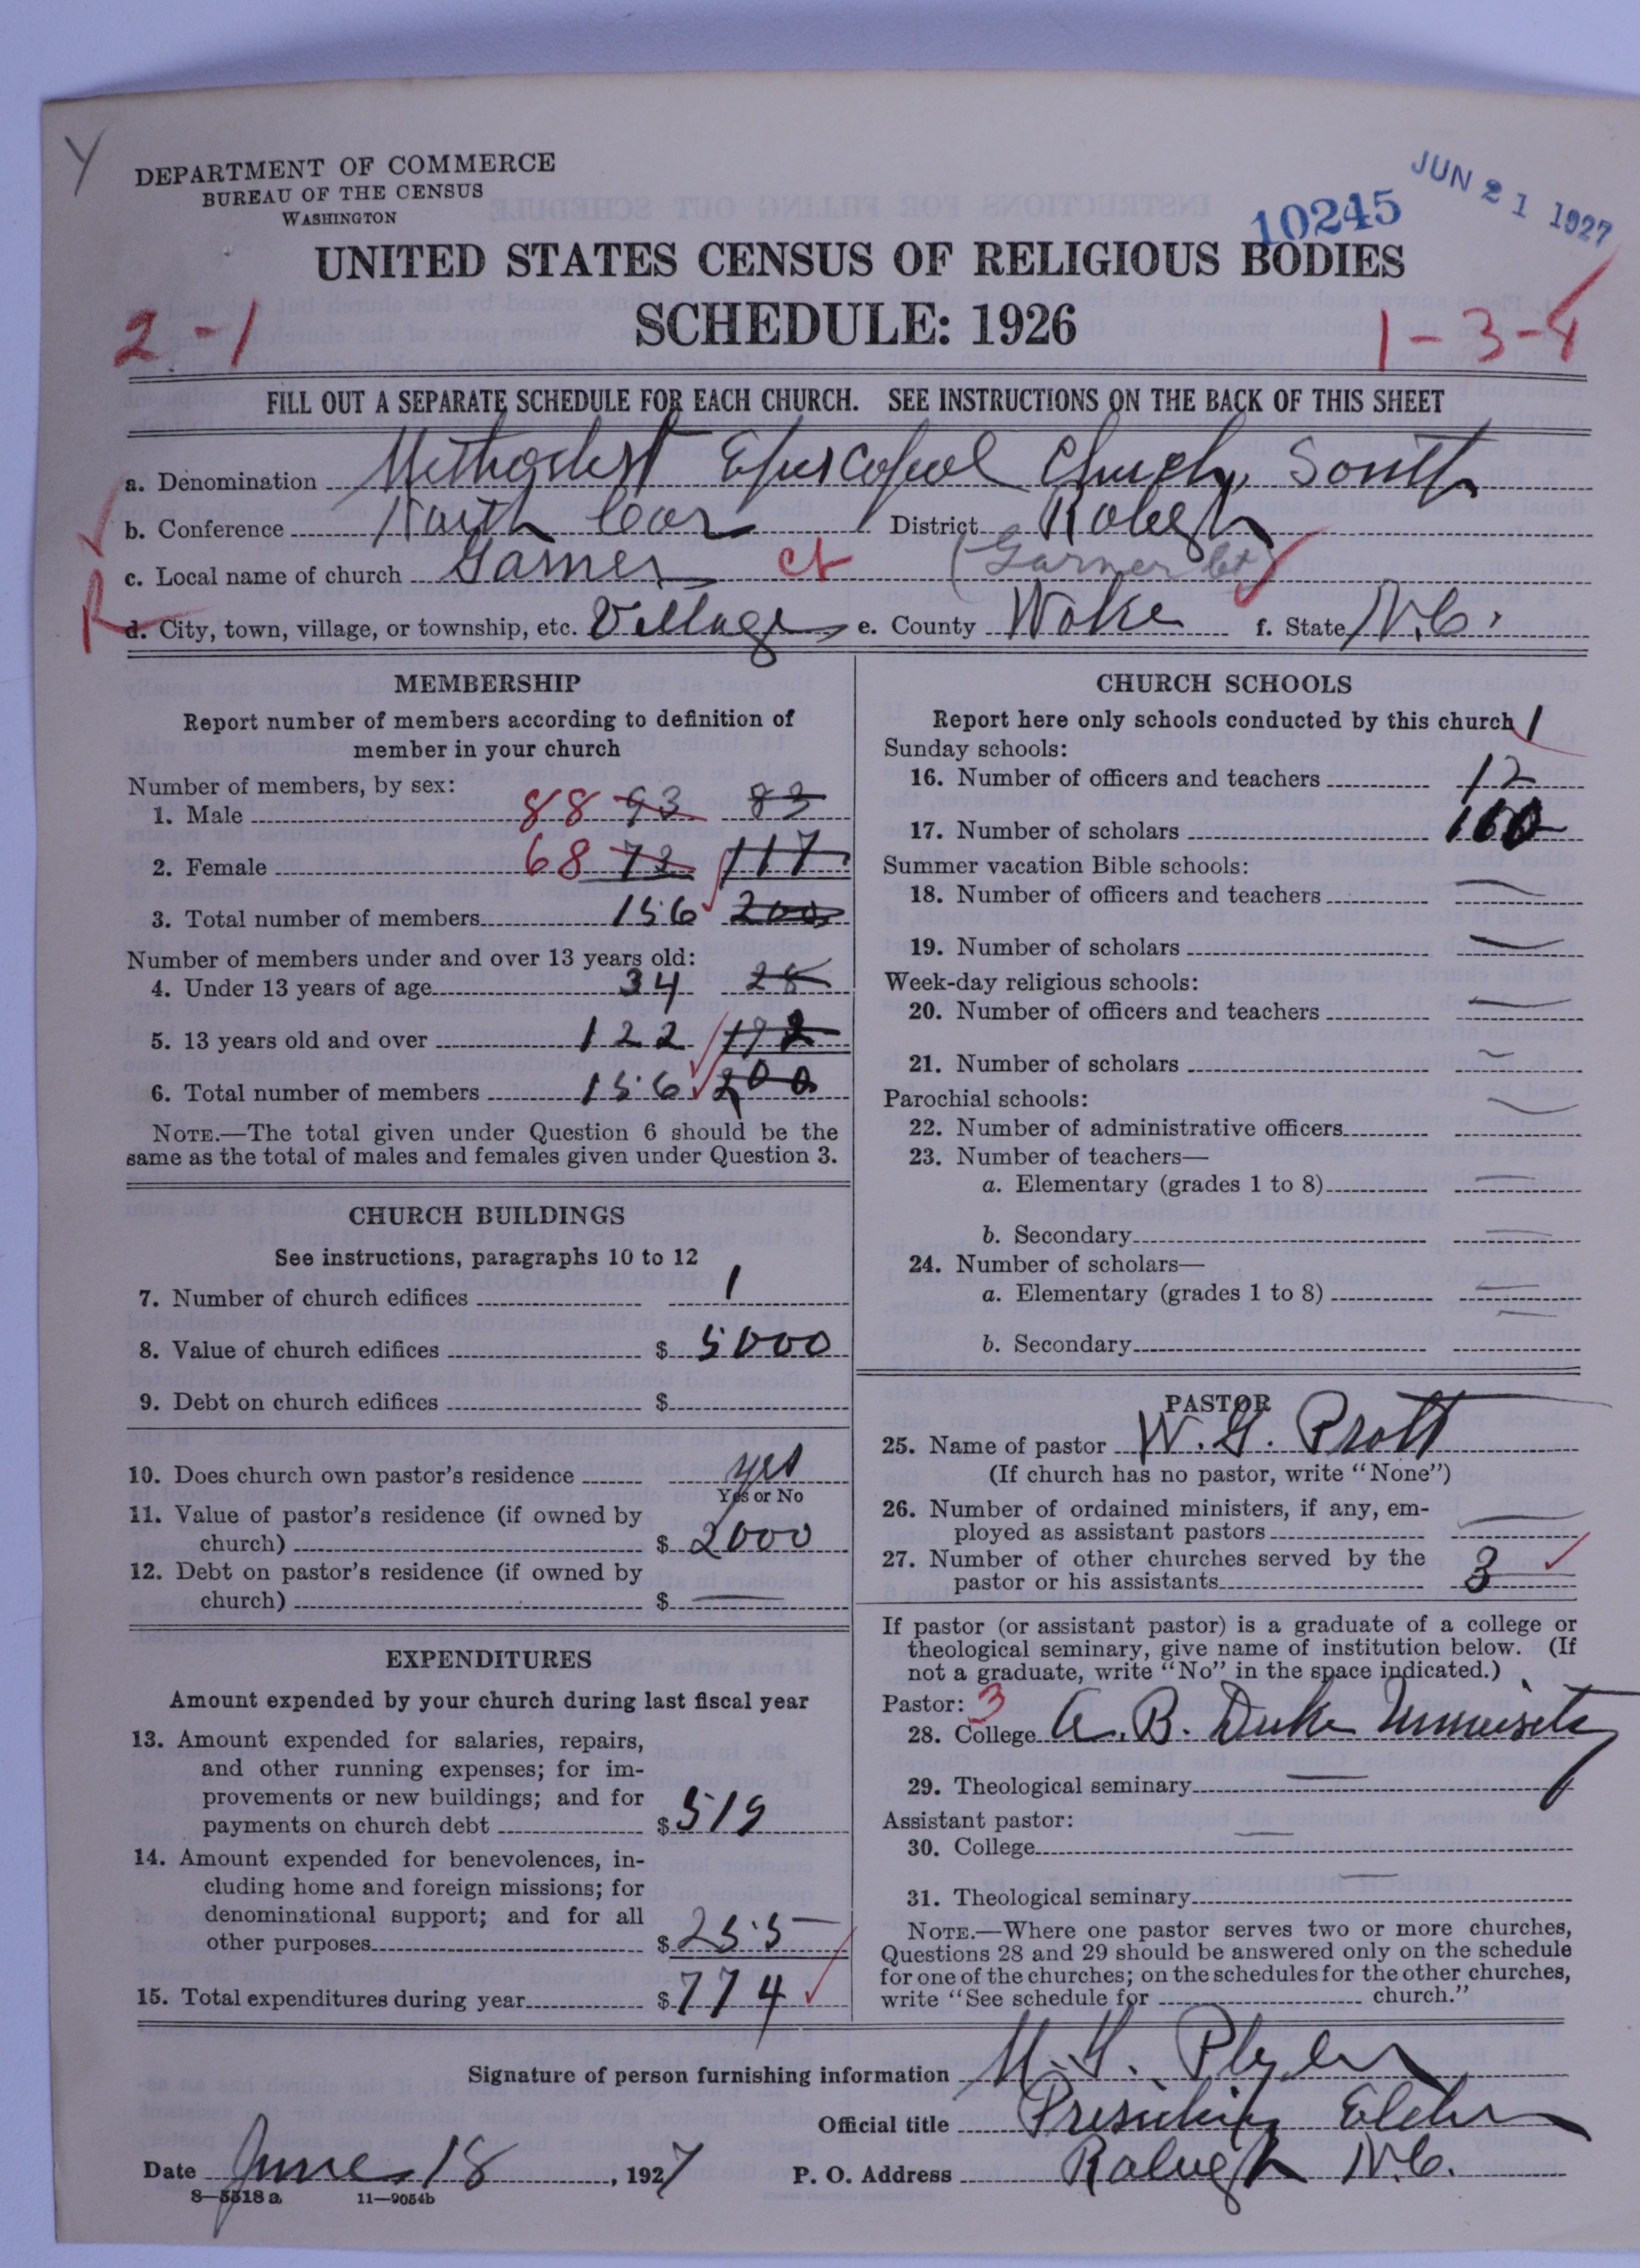 Y
DEPARTMENT OF COMMERCE
BUREAU OF THE CENSUS
WASHINGTON
10245
JUN 21 1927
UNITED STATES CENSUS OF RELIGIOUS BODIES
2-1
SCHEDULE: 1926
1-3-4
FILL OUT A SEPARATE SCHEDULE FOR EACH CHURCH. SEE INSTRUCTIONS ON THE BACK OF THIS SHEET
a. Denomination Methodist Episcopal Church, South
b. Conference North Car District Raleigh
c. Local name of church Garner ct (Garner Ct)
R
d. City, town, village, or township, etc. Village e. County Wake f. State N.C.
MEMBERSHIP
Report number of members according to definition of
member in your church
Number of members, by sex:
1. Male 88 93 83
2. Female 68 73 117
3. Total number of members 156 200
Number of members under and over 13 years old:
4. Under 13 years of age 34 28
5. 13 years old and over 122 172
6. Total number of members 156 200
NOTE.—The total given under Question 6 should be the
same as the total of males and females given under Question 3.
CHURCH BUILDINGS
See instructions, paragraphs 10 to 12
7. Number of church edifices 1
8. Value of church edifices $ 5000
9. Debt on church edifices $
10. Does church own pastor's residence yes
Yes or No
11. Value of pastor's residence (if owned by
church) $ 2000
12. Debt on pastor's residence (if owned by
church) $ —
EXPENDITURES
Amount expended by your church during last fiscal year
13. Amount expended for salaries, repairs,
and other running expenses; for im-
provements or new buildings; and for
payments on church debt $ 519
14. Amount expended for benevolences, in-
cluding home and foreign missions; for
denominational support; and for all
other purposes $ 255
15. Total expenditures during year $ 774
CHURCH SCHOOLS
Report here only schools conducted by this church 1
Sunday schools:
16. Number of officers and teachers 12
17. Number of scholars 160
Summer vacation Bible schools:
18. Number of officers and teachers —
19. Number of scholars —
Week-day religious schools:
20. Number of officers and teachers —
21. Number of scholars —
Parochial schools:
22. Number of administrative officers —
23. Number of teachers—
a. Elementary (grades 1 to 8) —
b. Secondary —
24. Number of scholars—
a. Elementary (grades 1 to 8) —
b. Secondary —
PASTOR
25. Name of pastor W. G. Pratt
(If church has no pastor, write "None")
26. Number of ordained ministers, if any, em-
ployed as assistant pastors —
27. Number of other churches served by the
pastor or his assistants 3
If pastor (or assistant pastor) is a graduate of a college or
theological seminary, give name of institution below. (If
not a graduate, write "No" in the space indicated.)
Pastor: 3
28. College A. B. Duke University
29. Theological seminary —
Assistant pastor:
30. College —
31. Theological seminary —
NOTE.—Where one pastor serves two or more churches,
Questions 28 and 29 should be answered only on the schedule
for one of the churches; on the schedules for the other churches,
write "See schedule for church."
Signature of person furnishing information M. T. Plyler
Official title Presiding Elder
Date June 18, 1927 P. O. Address Raleigh N.C.
8—5518 a 11—9054b